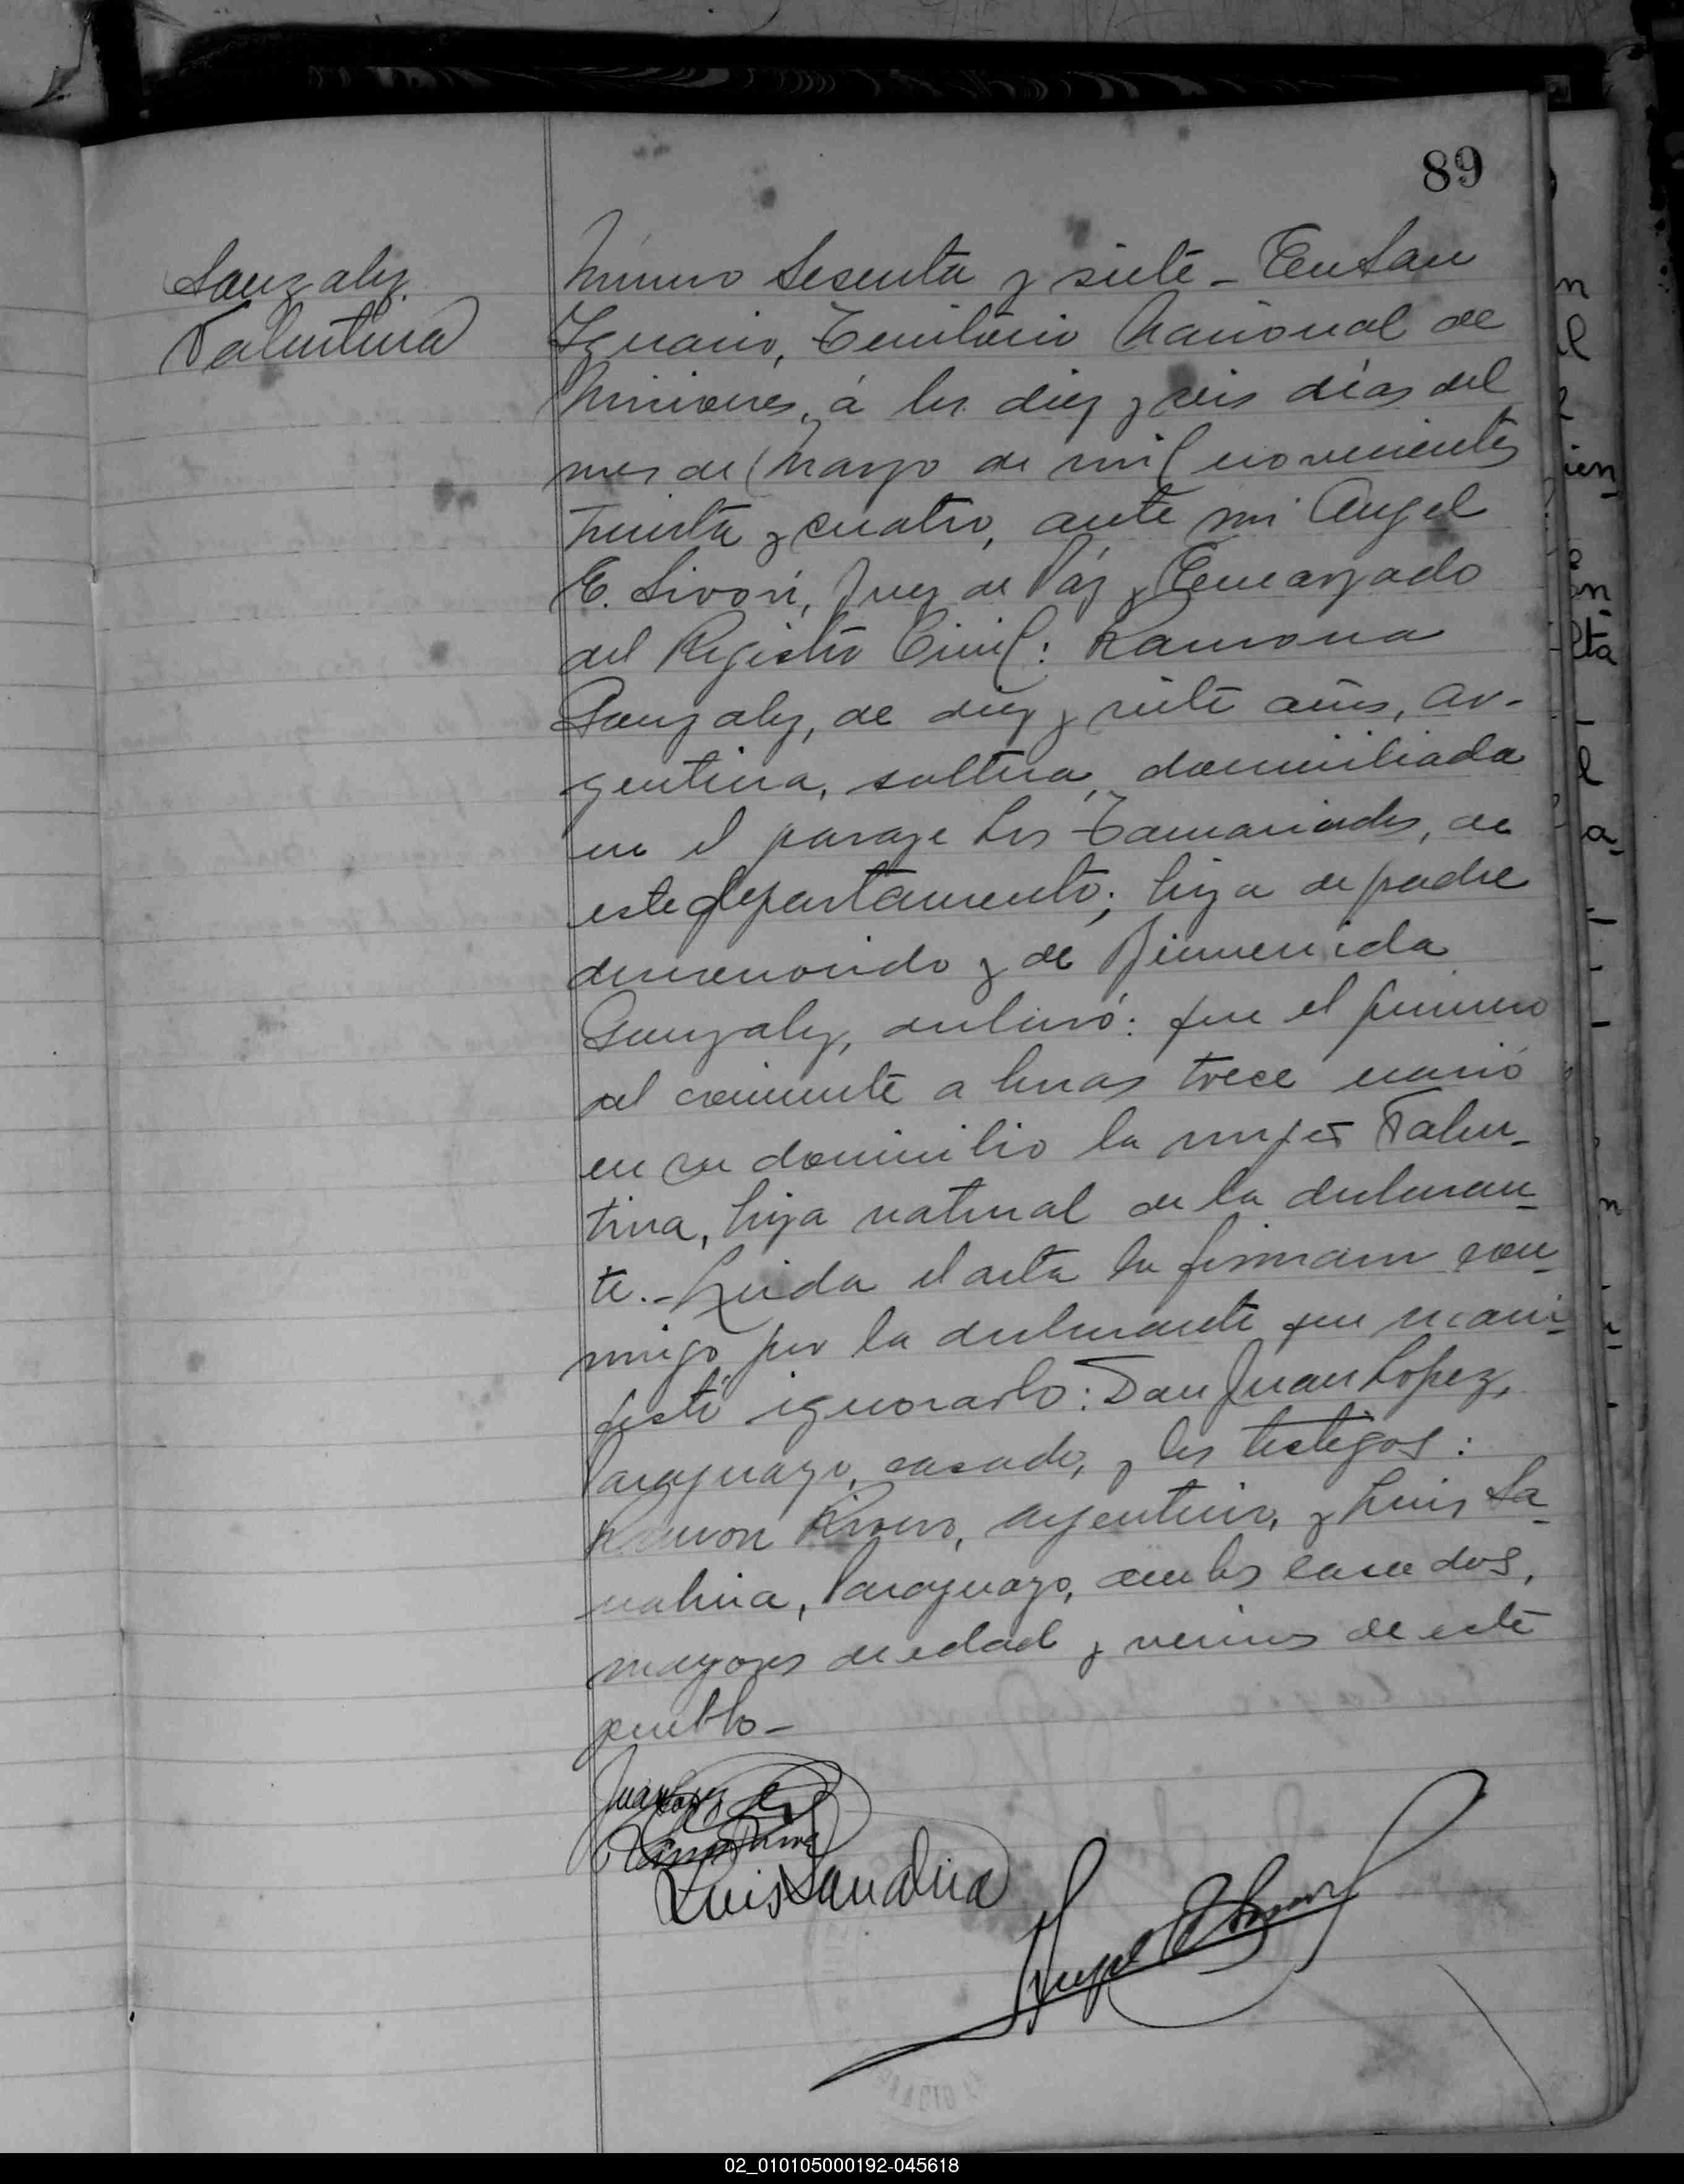 89
Gonzalez
Valentina
Número Sesenta y siete - En San
Ignacio, Territorio Nacional de
Misiones, á los diez y seis días del
mes de Marzo de mil novecientos
treinta y cuatro, ante mi Angel
E. Sivori, Juez de Páz y Encargado
del Registro Civil: Ramona
Gonzalez, de diez y siete años, ar-
gentina, soltera, domiciliada
en el paraje Los Tamarindos, de
este departamento; hija de padre
desconocido y de Bienvenida
Gonzalez, declaró: que el primero
del corriente a horas trece nació
en su domicilio la mujer Valen-
tina, hija natural de la declaran-
te.- Leida el acta la firmaron con-
migo por la declarante que mani-
festó ignorarlo: Don Juan Lopez,
Paraguayo, casado, y los testigos:
Ramon Rivero, argentino, y Luis Sa-
nabria, Paraguayo, ambos casados,
mayores de edad y vecinos de este
pueblo-
Juan Lopez
Luis Sanabria
Angel E. Sivori
n
l
ien
n-
lta
l
a-
n
02_010105000192-045618